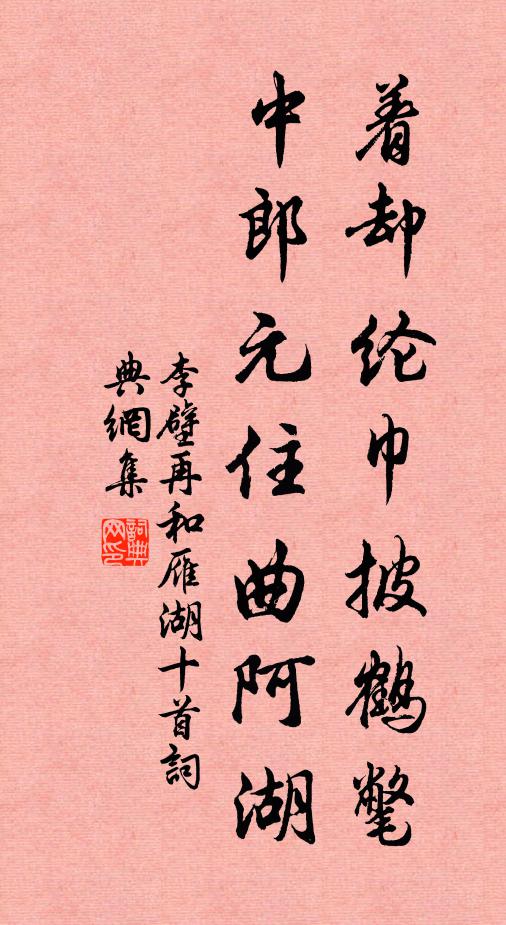 着却纶巾披鹤氅
中郎元住曲阿湖
李壁再和雁湖十首詞
典網集
詞典网印